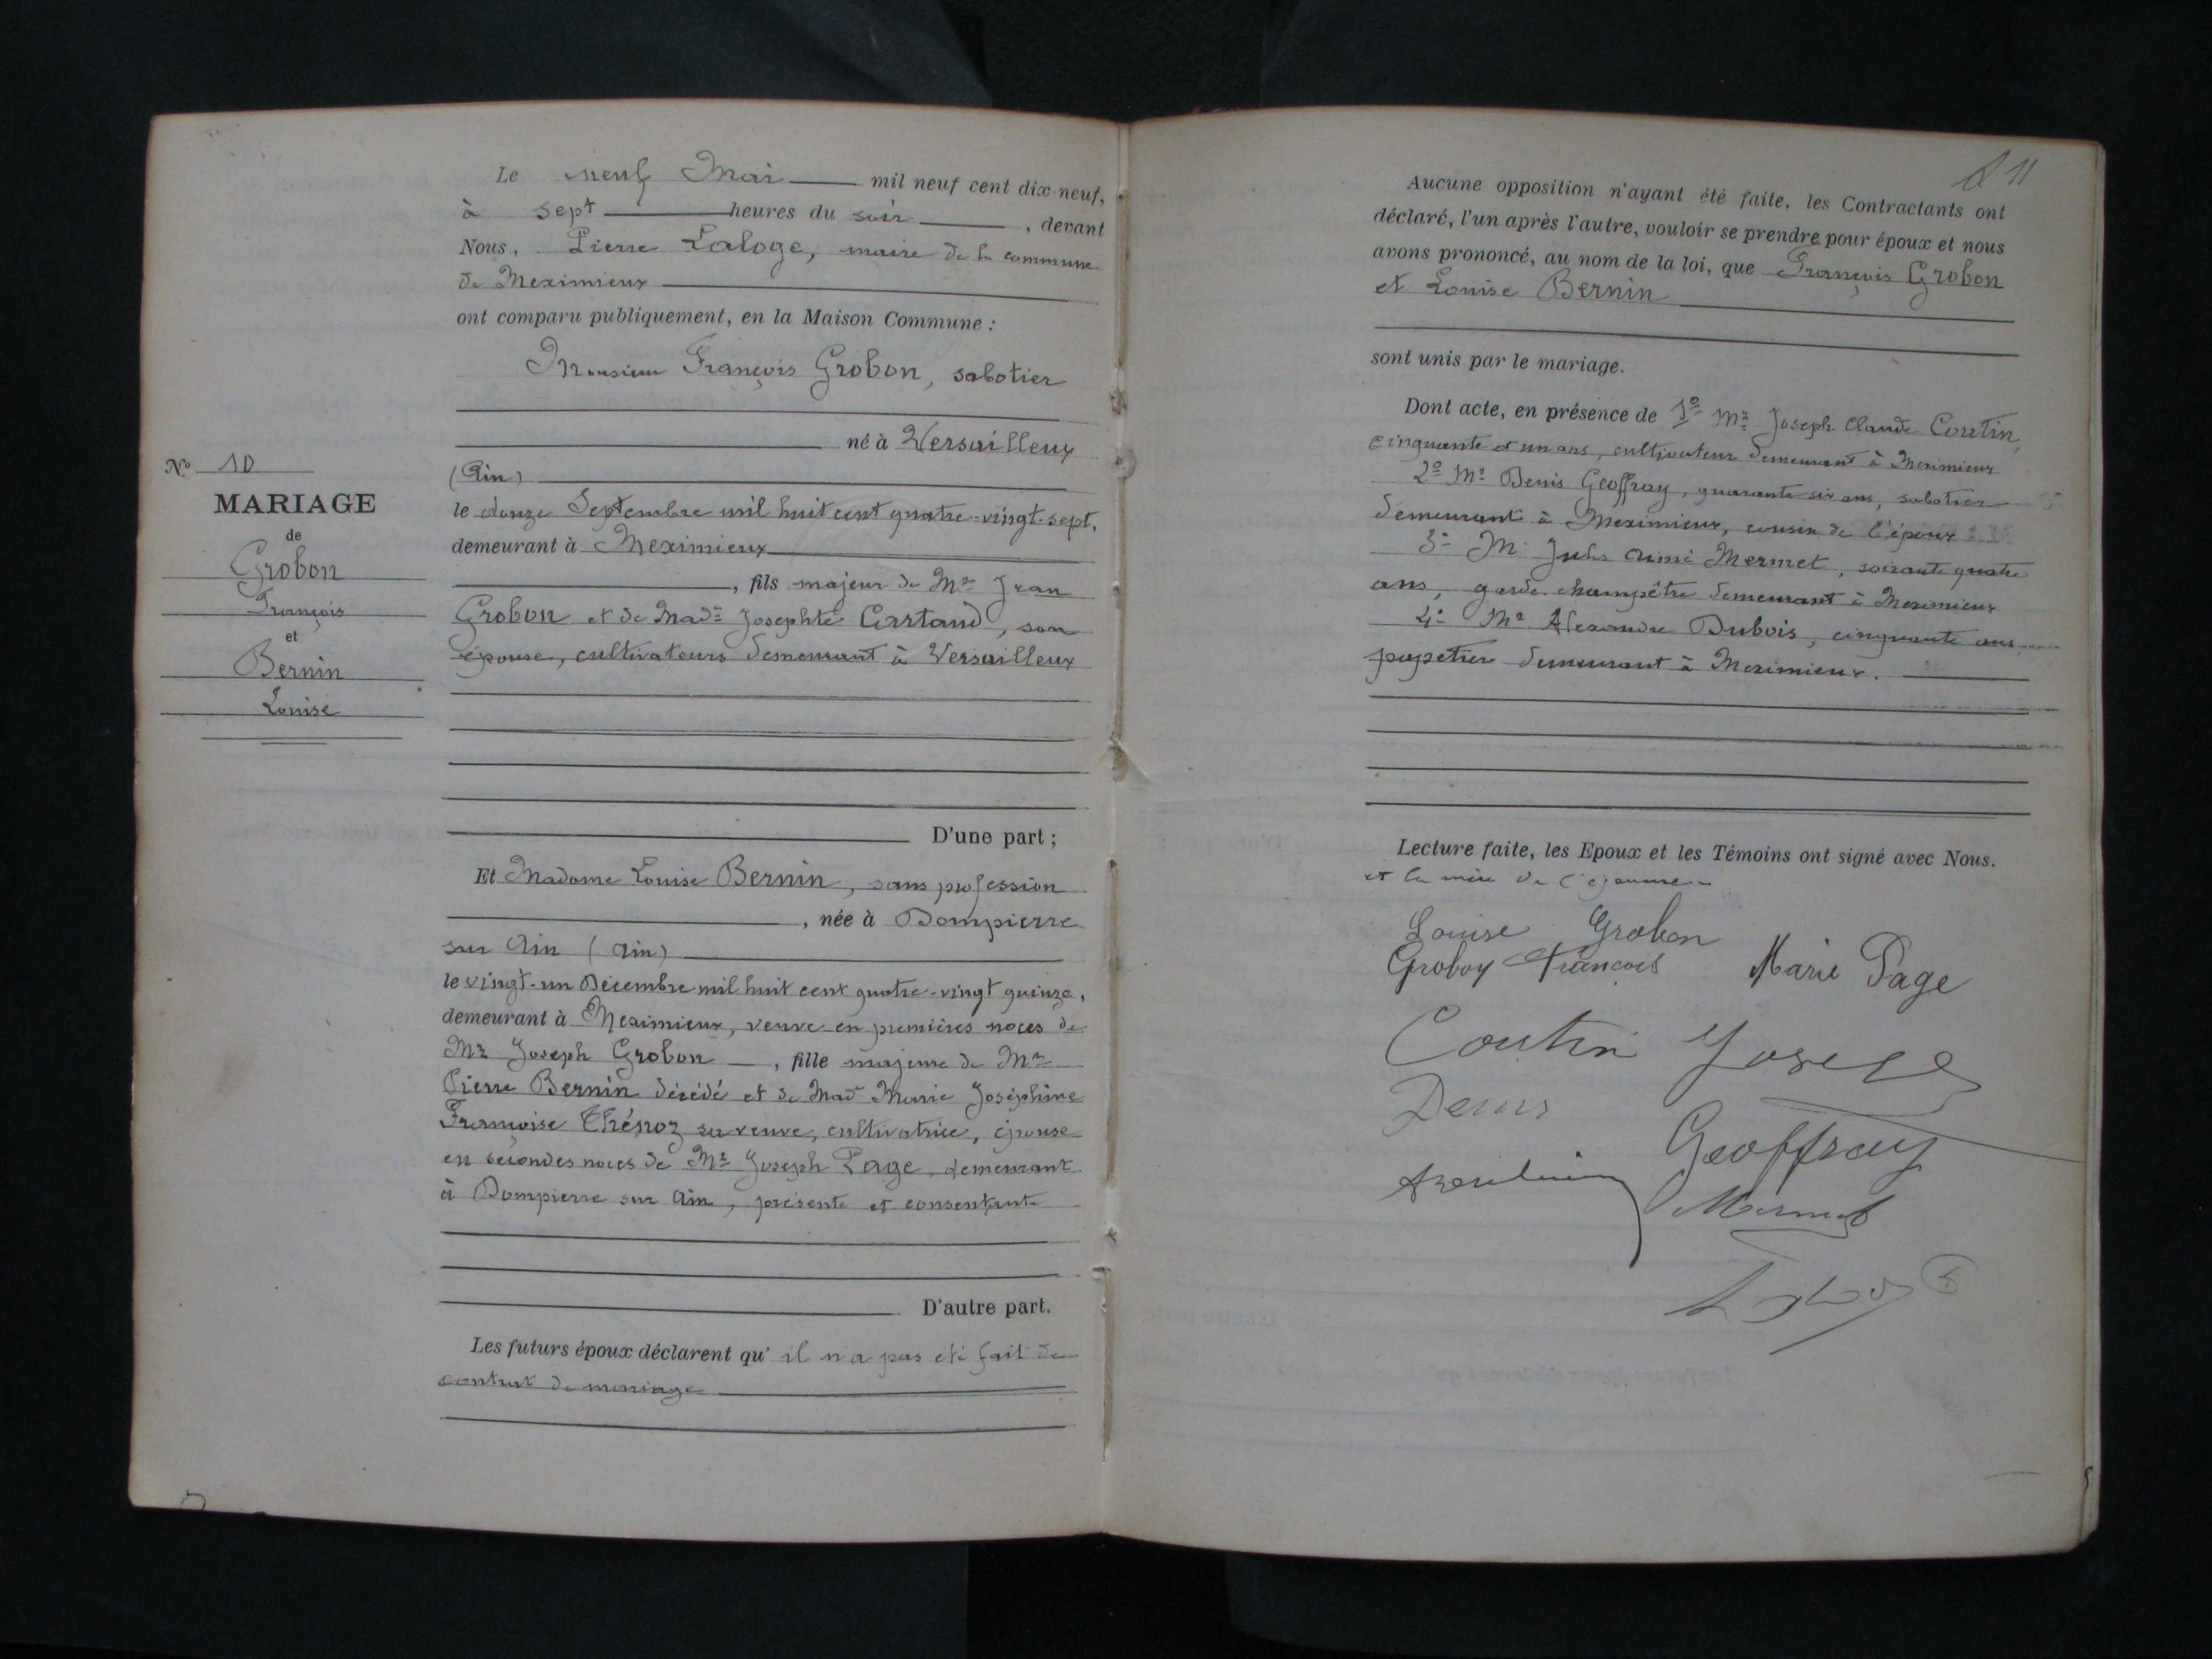 Le neuf Mai mil neuf cent dix-neuf,
à sept heures du soir, devant
Nous, Pierre Laloge, maire de la commune
de Meximieux
ont comparu publiquement, en la Maison Commune :
Monsieur François Grobon, sabotier
né à Versailleux
(Ain)
le douze Septembre mil huit cent quatre-vingt-sept,
demeurant à Meximieux
, fils majeur de Mr Jean
Grobon et de Made Josephte Castand, son
épouse, cultivateurs demeurant à Versailleux
D'une part ;
N° 10
MARIAGE
de
Grobon
François
et
Bernin
Louise
Et Madame Louise Bernin, sans profession
, née à Dompierre
sur Ain (Ain)
le vingt-un Décembre mil huit cent quatre-vingt quinze,
demeurant à Meximieux, veuve en premières noces de
Mr Joseph Grobon, fille majeure de Mr
Pierre Bernin décédé et de Made Marie Joséphine
Françoise Thénoz sa veuve, cultivatrice, épouse
en secondes noces de Mr Joseph Page, demeurant
à Dompierre sur Ain, présente et consentante
D'autre part.
Les futurs époux déclarent qu'il n'a pas été fait de
contrat de mariage
11
Aucune opposition n'ayant été faite, les Contractants ont
déclaré, l'un après l'autre, vouloir se prendre pour époux et nous
avons prononcé, au nom de la loi, que François Grobon
et Louise Bernin
sont unis par le mariage.
Dont acte, en présence de 1° Mr Joseph Claude Coutin,
cinquante et un ans, cultivateur demeurant à Meximieux
2° Mr Denis Geoffray, quarante six ans, sabotier
demeurant à Meximieux, cousin de l'époux
3° M. Jules Aimé Mermet, soixante quatre
ans, garde champêtre demeurant à Meximieux
4° Mr Alexandre Dubois, cinquante ans
papetier demeurant à Meximieux.
Lecture faite, les Epoux et les Témoins ont signé avec Nous.
et la mère de l'épouse
Louise Grobon
Grobon François Marie Page
Coutin Joseph
Denis
Geoffray
Mermet